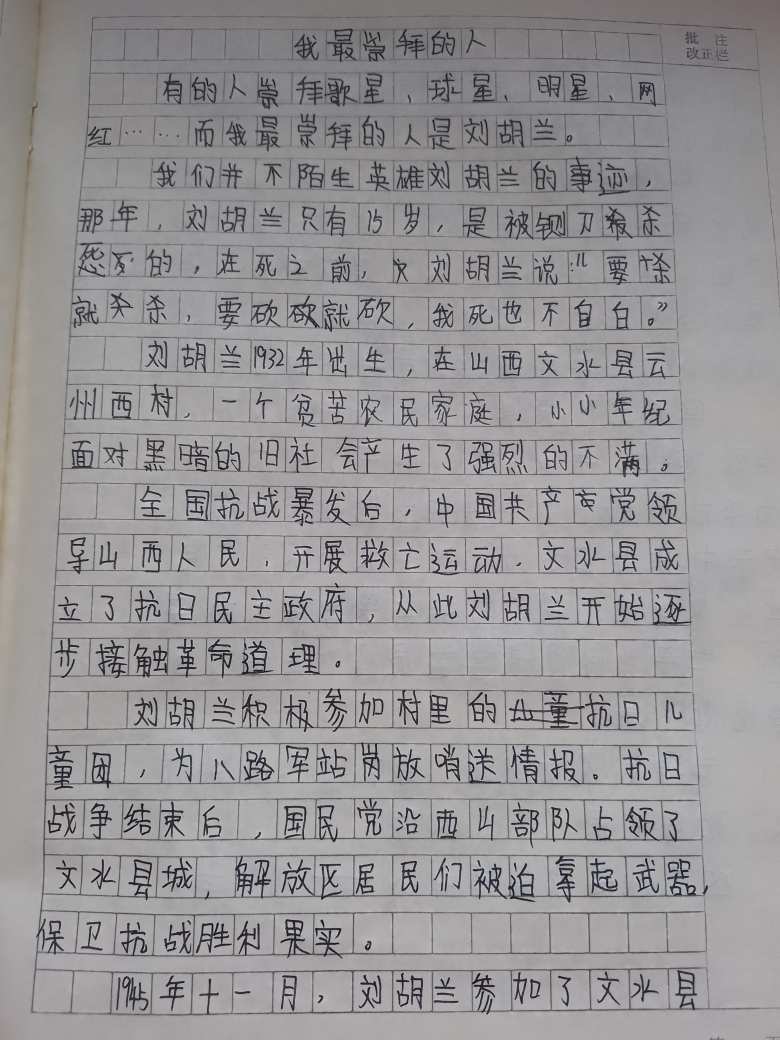 我最崇拜的人
批 注
改正栏
有的人崇拜歌星、球星、明星、网
红……而我最崇拜的人是刘胡兰。
我们并不陌生英雄刘胡兰的事迹，
那年，刘胡兰只有15岁，是被铡刀杀
死的，在死之前，刘胡兰说：“要杀
就杀，要砍就砍，我死也不自白。”
刘胡兰1932年出生，在山西文水县云
州西村，一个贫苦农民家庭，小小年纪
面对黑暗的旧社会产生了强烈的不满。
全国抗战暴发后，中国共产党领
导山西人民，开展救亡运动．文水县成
立了抗日民主政府，从此刘胡兰开始逐
步接触革命道理。
刘胡兰积极参加村里的抗日儿
童团，为八路军站岗放哨送情报。抗日
战争结束后，国民党沿西山部队占领了
文水县城，解放区居民们被迫拿起武器，
保卫抗战胜利果实。
1945年十一月，刘胡兰参加了文水县